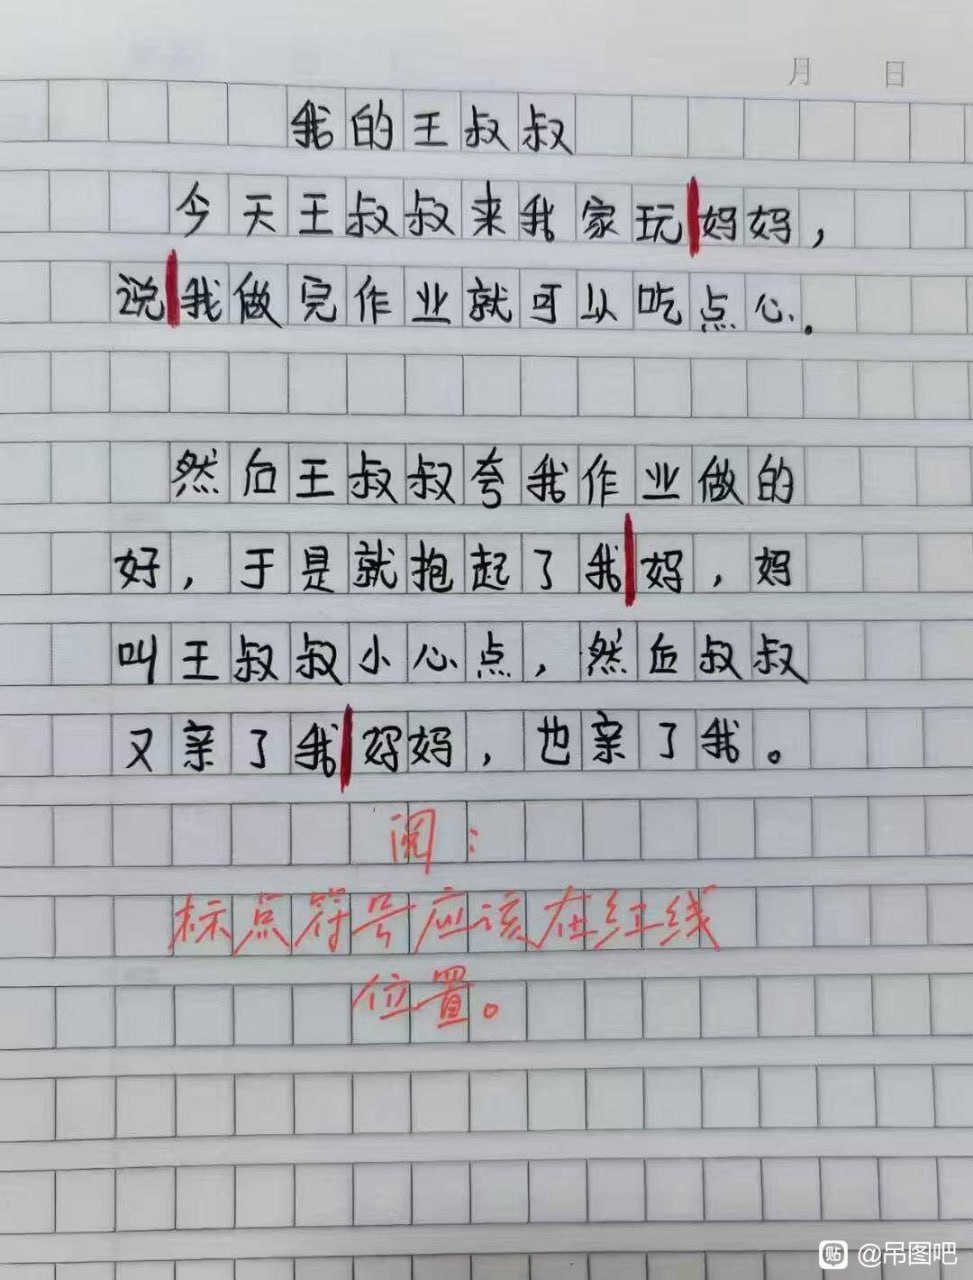 月 日
我的王叔叔
今天王叔叔来我家玩妈妈，
说我做完作业就可以吃点心.
然后王叔叔夸我作业做的
好，于是就抱起了我妈，妈
叫王叔叔小心点，然后叔叔
又亲了我妈妈，也亲了我。
阅：
标点符号应该在红线
位置。
贴 @吊图吧